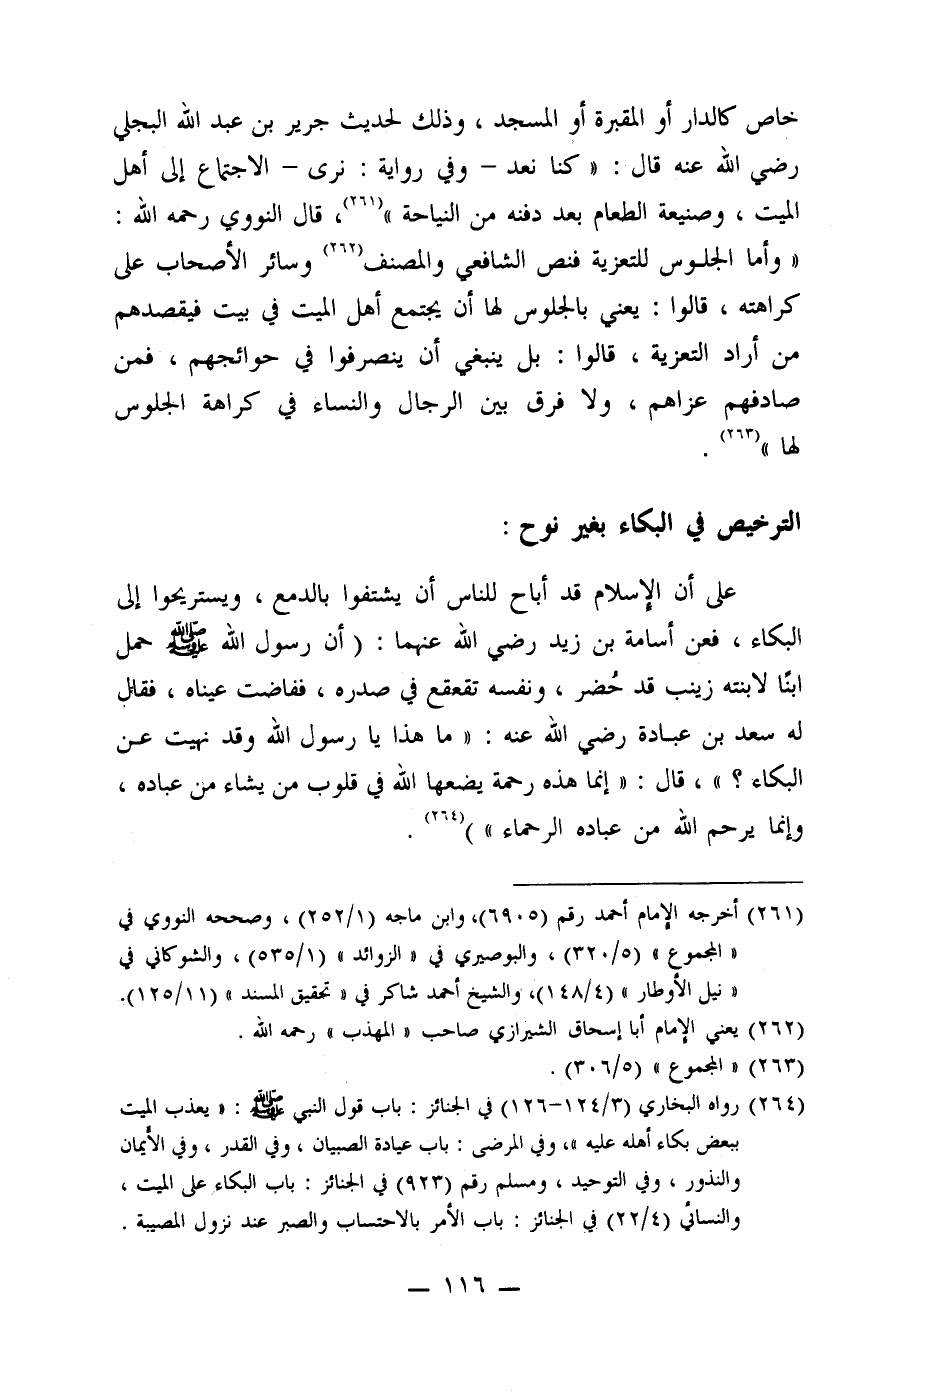 خاص كالدار أو المقبرة أو المسجد ، وذلك لحديث جرير بن عبد الله البجلي
رضي الله عنه قال : « كنا نعد – وفي رواية : نرى – الاجتماع إلى أهل
الميت ، وصنيعة الطعام بعد دفنه من النياحة »(٢٦١)، قال النووي رحمه الله :
« وأما الجلوس للتعزية فنص الشافعي والمصنف(٢٦٢) وسائر الأصحاب على
كراهته ، قالوا : يعني بالجلوس لها أن يجتمع أهل الميت في بيت فيقصدهم
من أراد التعزية ، قالوا : بل ينبغي أن ينصرفوا في حوائجهم ، فمن
صادفهم عزاهم ، ولا فرق بين الرجال والنساء في كراهة الجلوس
لها »(٢٦٣) .
الترخيص في البكاء بغير نوح :
على أن الإسلام قد أباح للناس أن يشتفوا بالدمع ، ويستريحوا إلى
البكاء ، فعن أسامة بن زيد رضي الله عنهما : ( أن رسول الله ﷺ حمل
ابنًا لابنته زينب قد حُضر ، ونفسه تقعقع في صدره ، ففاضت عيناه ، فقال
له سعد بن عبادة رضي الله عنه : « ما هذا يا رسول الله وقد نهيت عن
البكاء ؟ » ، قال : « إنما هذه رحمة يضعها الله في قلوب من يشاء من عباده ،
وإنما يرحم الله من عباده الرحماء » )(٢٦٤) .
(٢٦١) أخرجه الإمام أحمد رقم (٦٩٠٥)، وابن ماجه (٢٥٢/١) ، وصححه النووي في
« المجموع » (٣٢٠/٥) ، والبوصيري في « الزوائد » (٥٣٥/١) ، والشوكاني في
« نيل الأوطار » (١٤٨/٤)، والشيخ أحمد شاكر في « تحقيق المسند » (١٢٥/١١).
(٢٦٢) يعني الإمام أبا إسحاق الشيرازي صاحب « المهذب » رحمه الله .
(٢٦٣) « المجموع » (٣٠٦/٥) .
(٢٦٤) رواه البخاري (١٢٤/٣–١٢٦) في الجنائز : باب قول النبي ﷺ : « يعذب الميت
ببعض بكاء أهله عليه »، وفي المرضى : باب عيادة الصبيان ، وفي القدر ، وفي الأيمان
والنذور ، وفي التوحيد ، ومسلم رقم (٩٢٣) في الجنائز : باب البكاء على الميت ،
والنسائي (٢٢/٤) في الجنائز : باب الأمر بالاحتساب والصبر عند نزول المصيبة .
— ١١٦ —